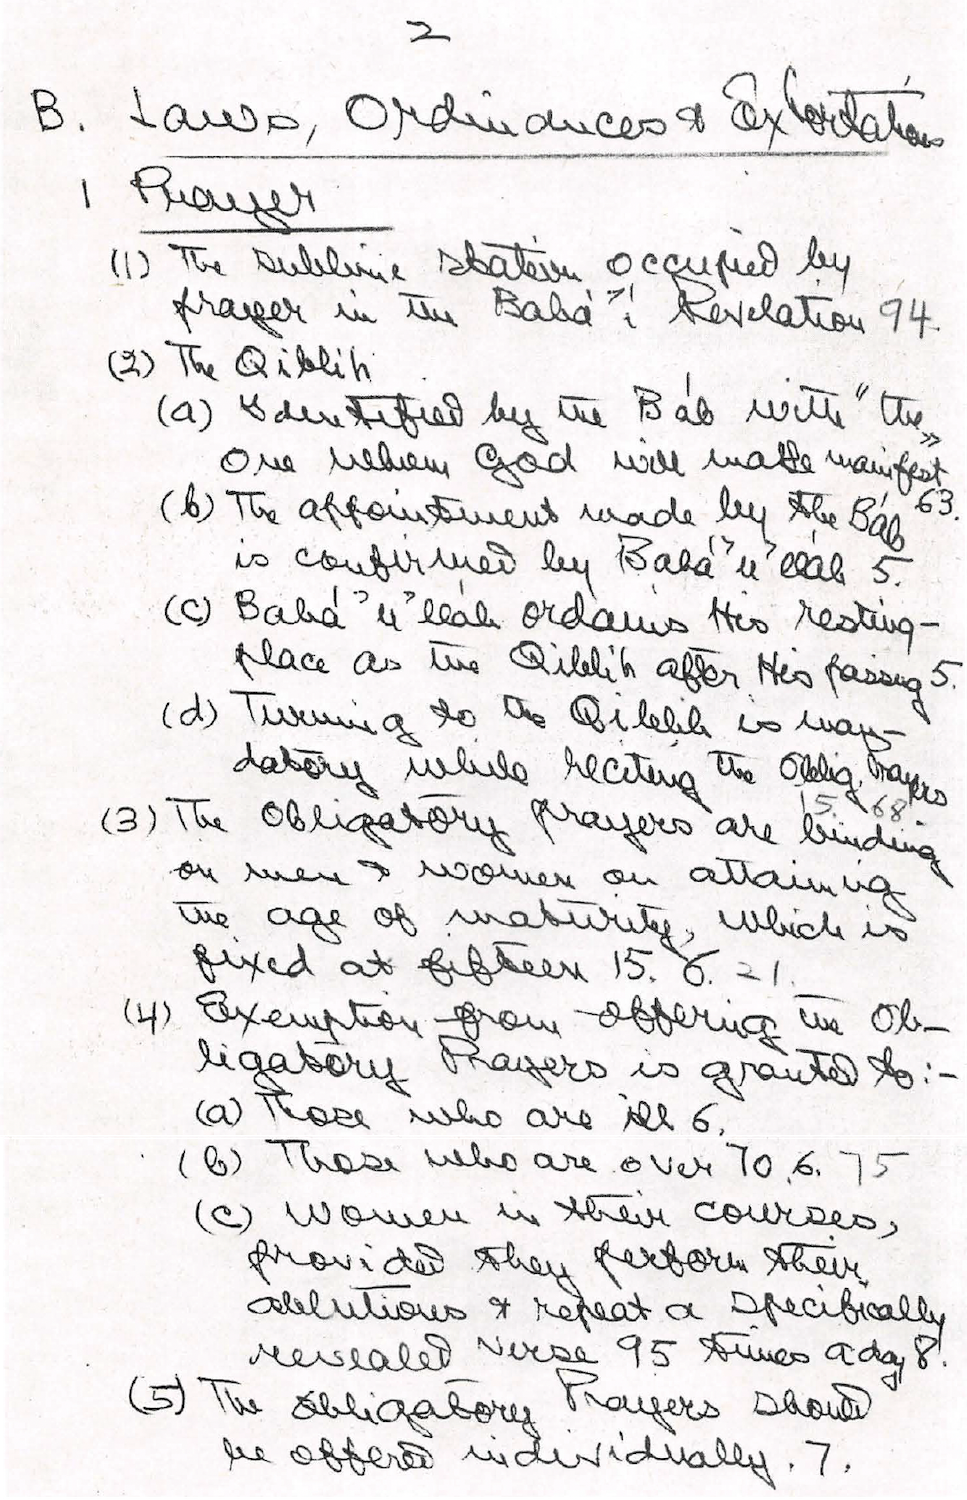 2
B. Laws, Ordinances & Exhortations
1 Prayer
(1) The sublime station occupied by
prayer in the Bahá'í Revelation 94.
(2) The Qiblih
(a) Identified by the Báb with "the
One whom God will make manifest"
63.
(b) The appointment made by the Báb
is confirmed by Bahá'u'lláh 5.
(c) Bahá'u'lláh ordains His resting-
place as the Qiblih after His passing 5.
(d) Turning to the Qiblih is man-
datory while reciting the Oblig. Prayers
15. 68
(3) The Obligatory prayers are binding
on men & women on attaining
the age of maturity, which is
fixed at fifteen 15. 6. 21.
(4) Exemption from offering the Ob-
ligatory Prayers is granted to:-
(a) Those who are ill 6.
(b) Those who are over 70. 6. 75
(c) Women in their courses,
provided they perform their
ablutions & repeat a specifically
revealed verse 95 times a day 8.
(5) The obligatory Prayers should
be offered individually. 7.